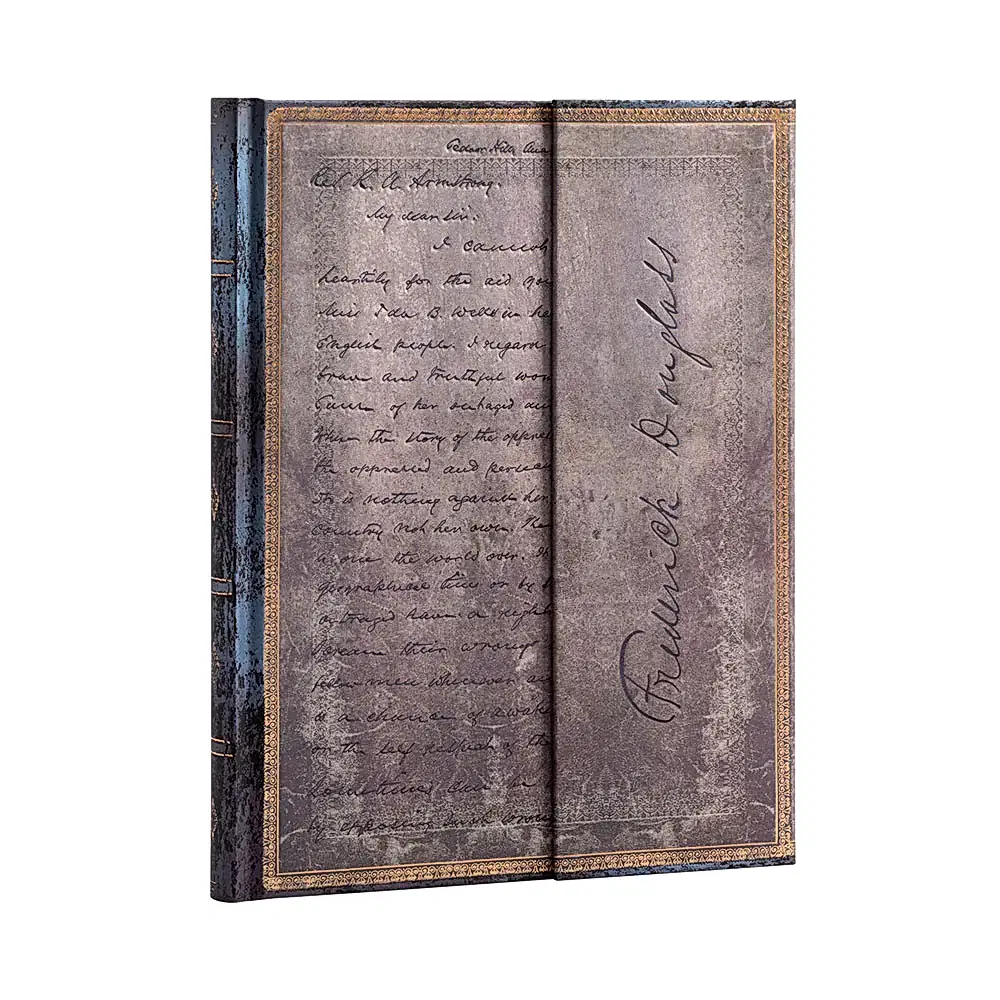 Cedar Hill. Ana
Rev. R. A. Armstrong.
My dear Sir.
I cannot
heartily for the aid you
Miss Ida B. Wells in he
English people. I regard
brave and truthful wom
of her outraged an
When the story of the oppres
the oppressed and persec
It is nothing against her
country not her own. The
is one the world over.
geographical lines or by
outraged have a right
their wrongs
fellow men wherever
is a chance of awak
on the of the
Sometimes
by such
Frederick Douglass